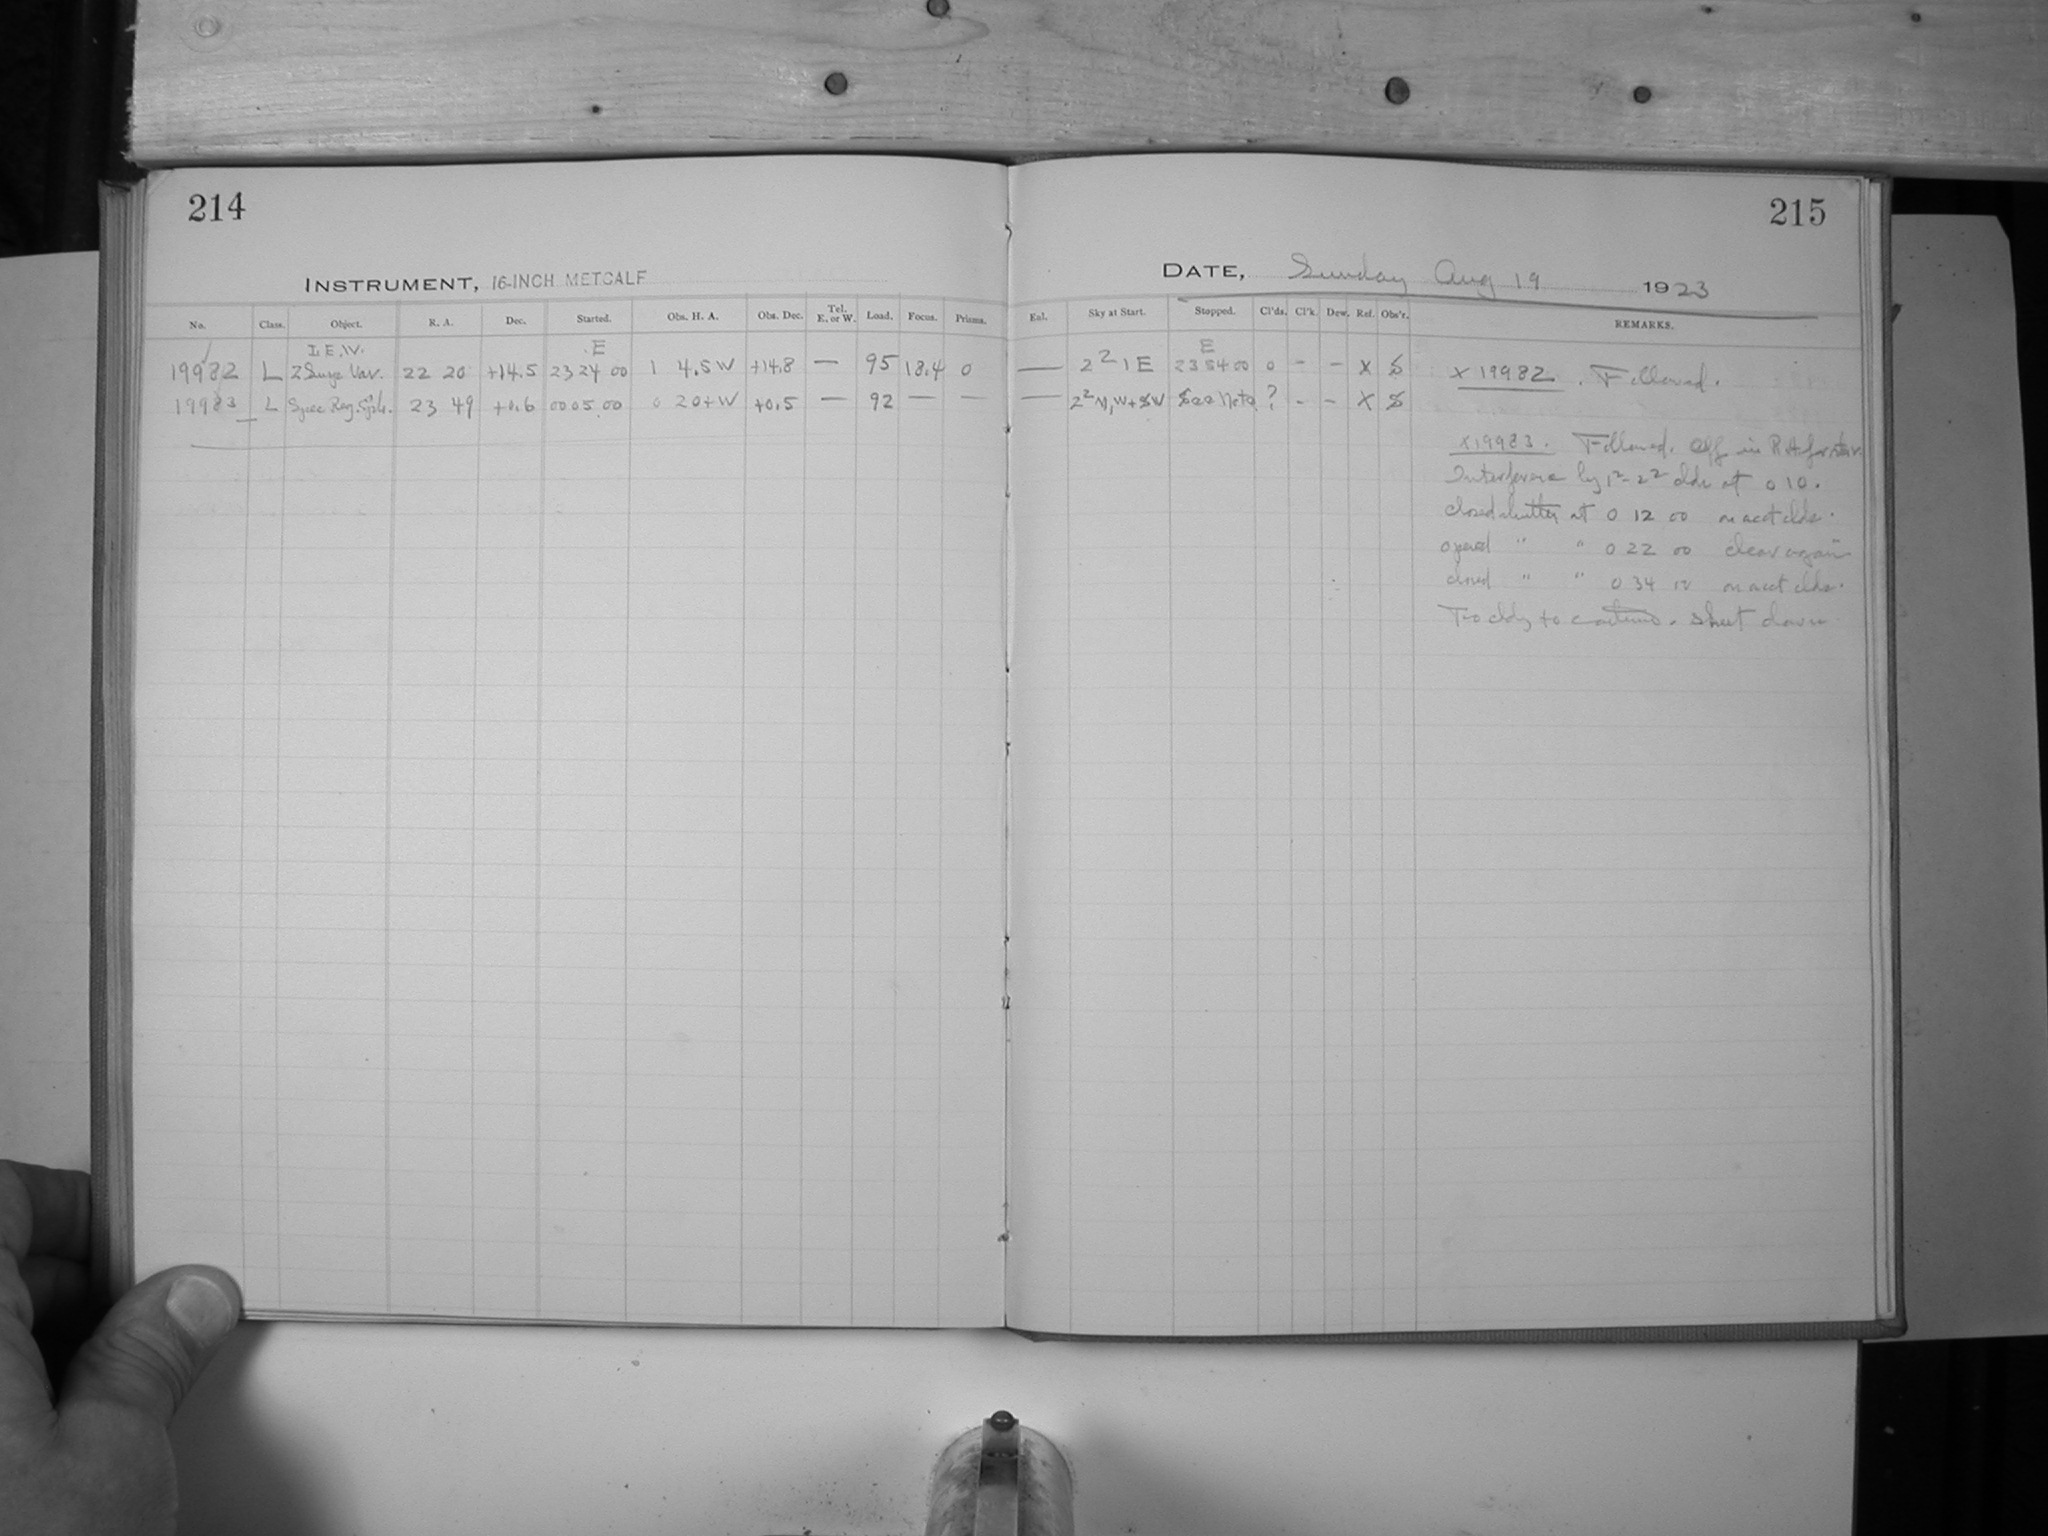 214
INSTRUMENT, 16-INCH METCALF
No. Class. Object. R. A. Dec. Started. Obs. H. A. Obs. Dec. Tel. E. or W. Load. Focus. Prisms.
I. E. W. E
19982 L Var. 22 20 +14.5 23 24 00 1 4.5 W +14.8 — 95 18.4 0
19983 L Spec Reg. 23 49 +0.6 00 05 00 0 20+W +0.5 — 92 — —
215
DATE, Sunday Aug 19 1923
Ext. Sky at Start. Stopped. Cl'ds. Cl'k. Dew. Ref. Obs'r. REMARKS.
E
— 2² 1 E 23 54 00 0 - - X S X 19982. Followed.
— 2² N, W + SW See Note ? - - X S
X19983. Followed. Off in R.A. for star.
Interference by 1²-2² clds at 0 10.
closed shutter at 0 12 00 on acct clds.
opened " " 0 22 00 clear again
closed " " 0 34 on acct clds.
Too cldy to continue. Shut down